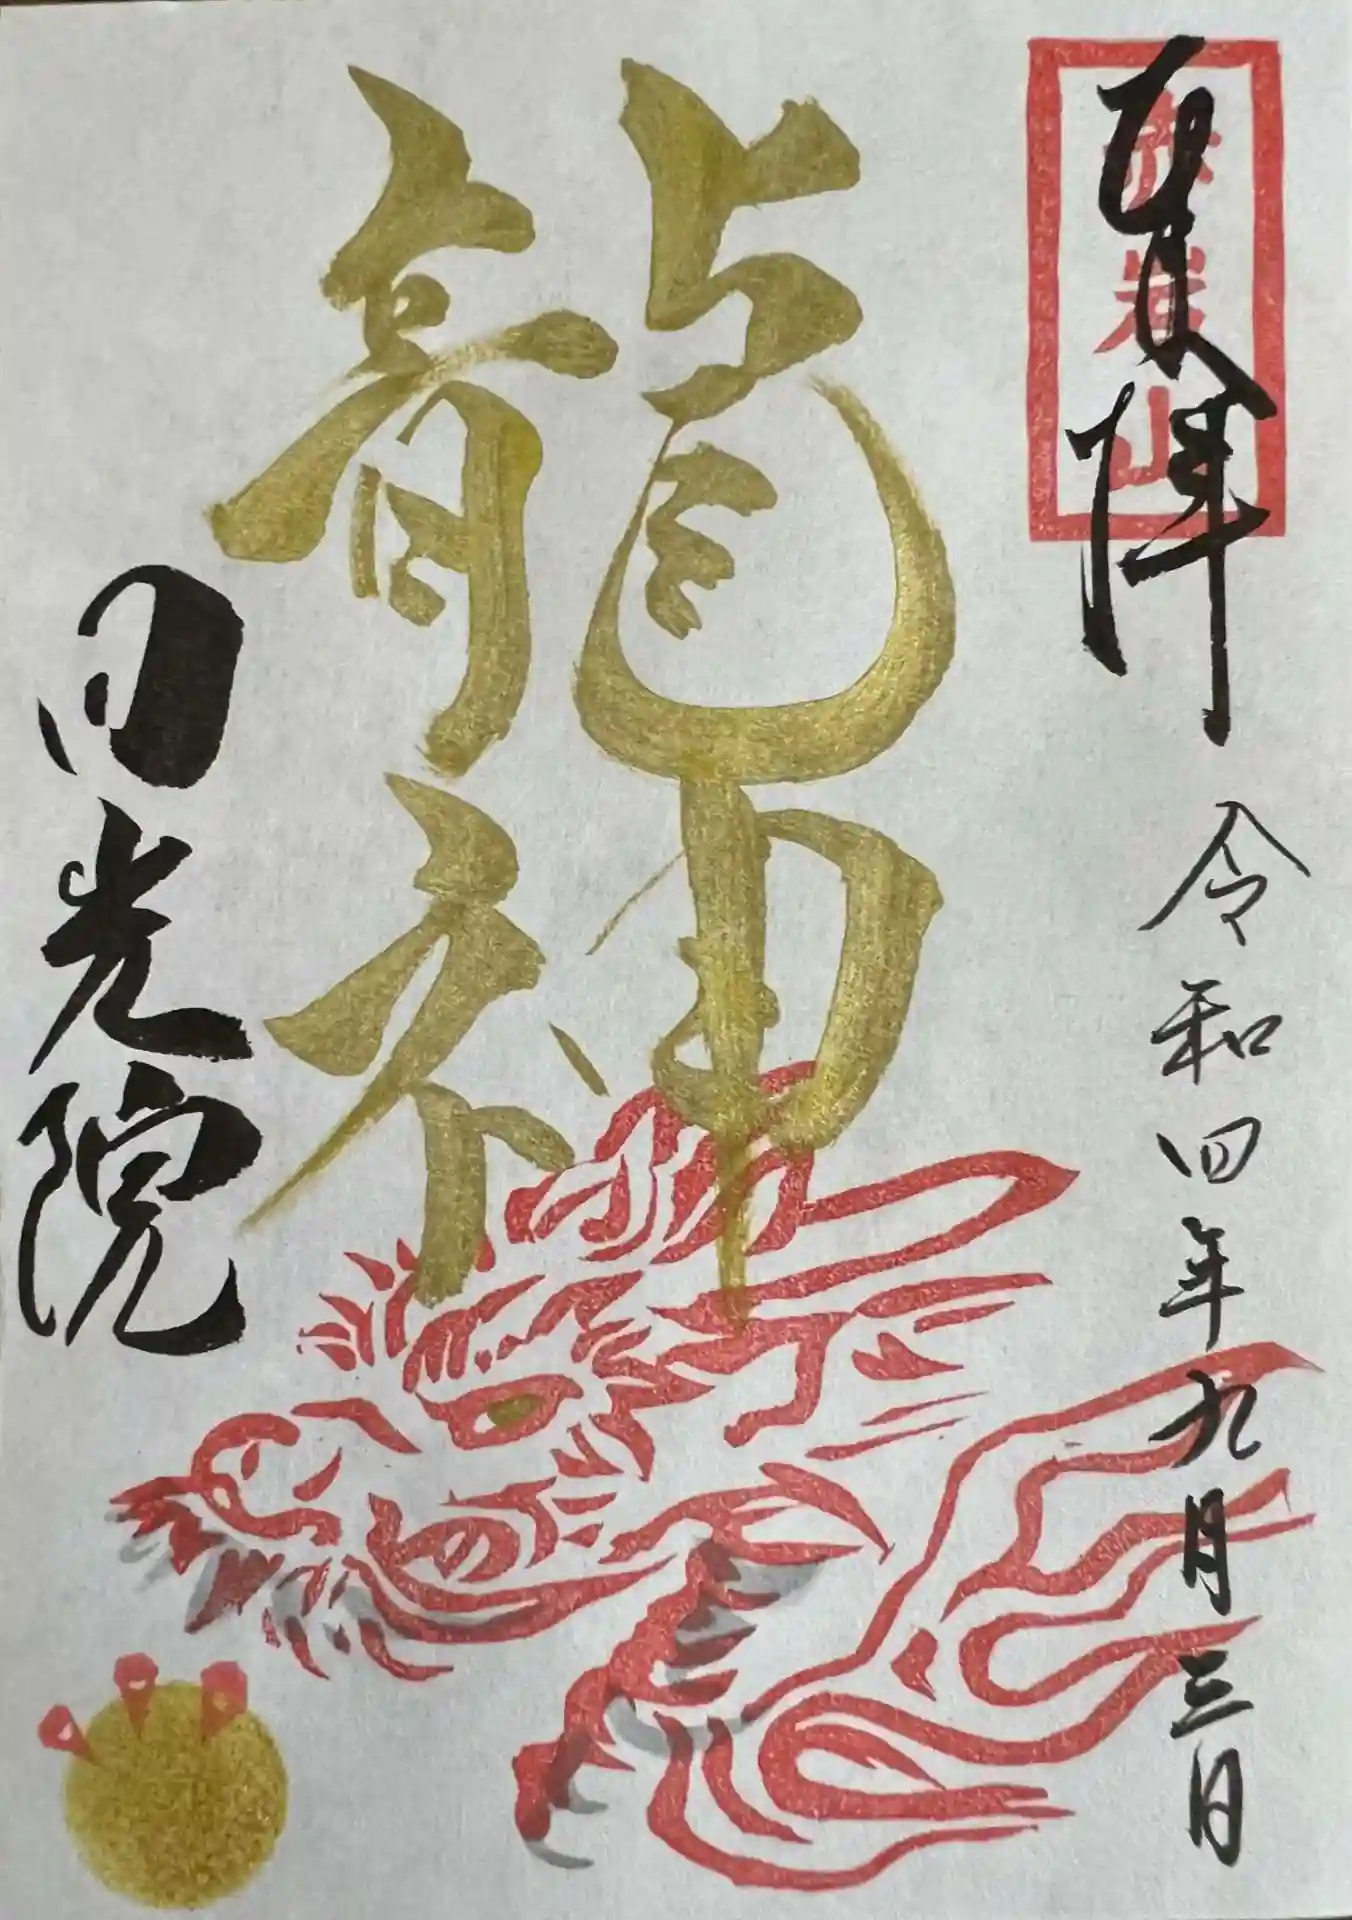 拝
岩山
令和四年九月三日
龍神
日光院